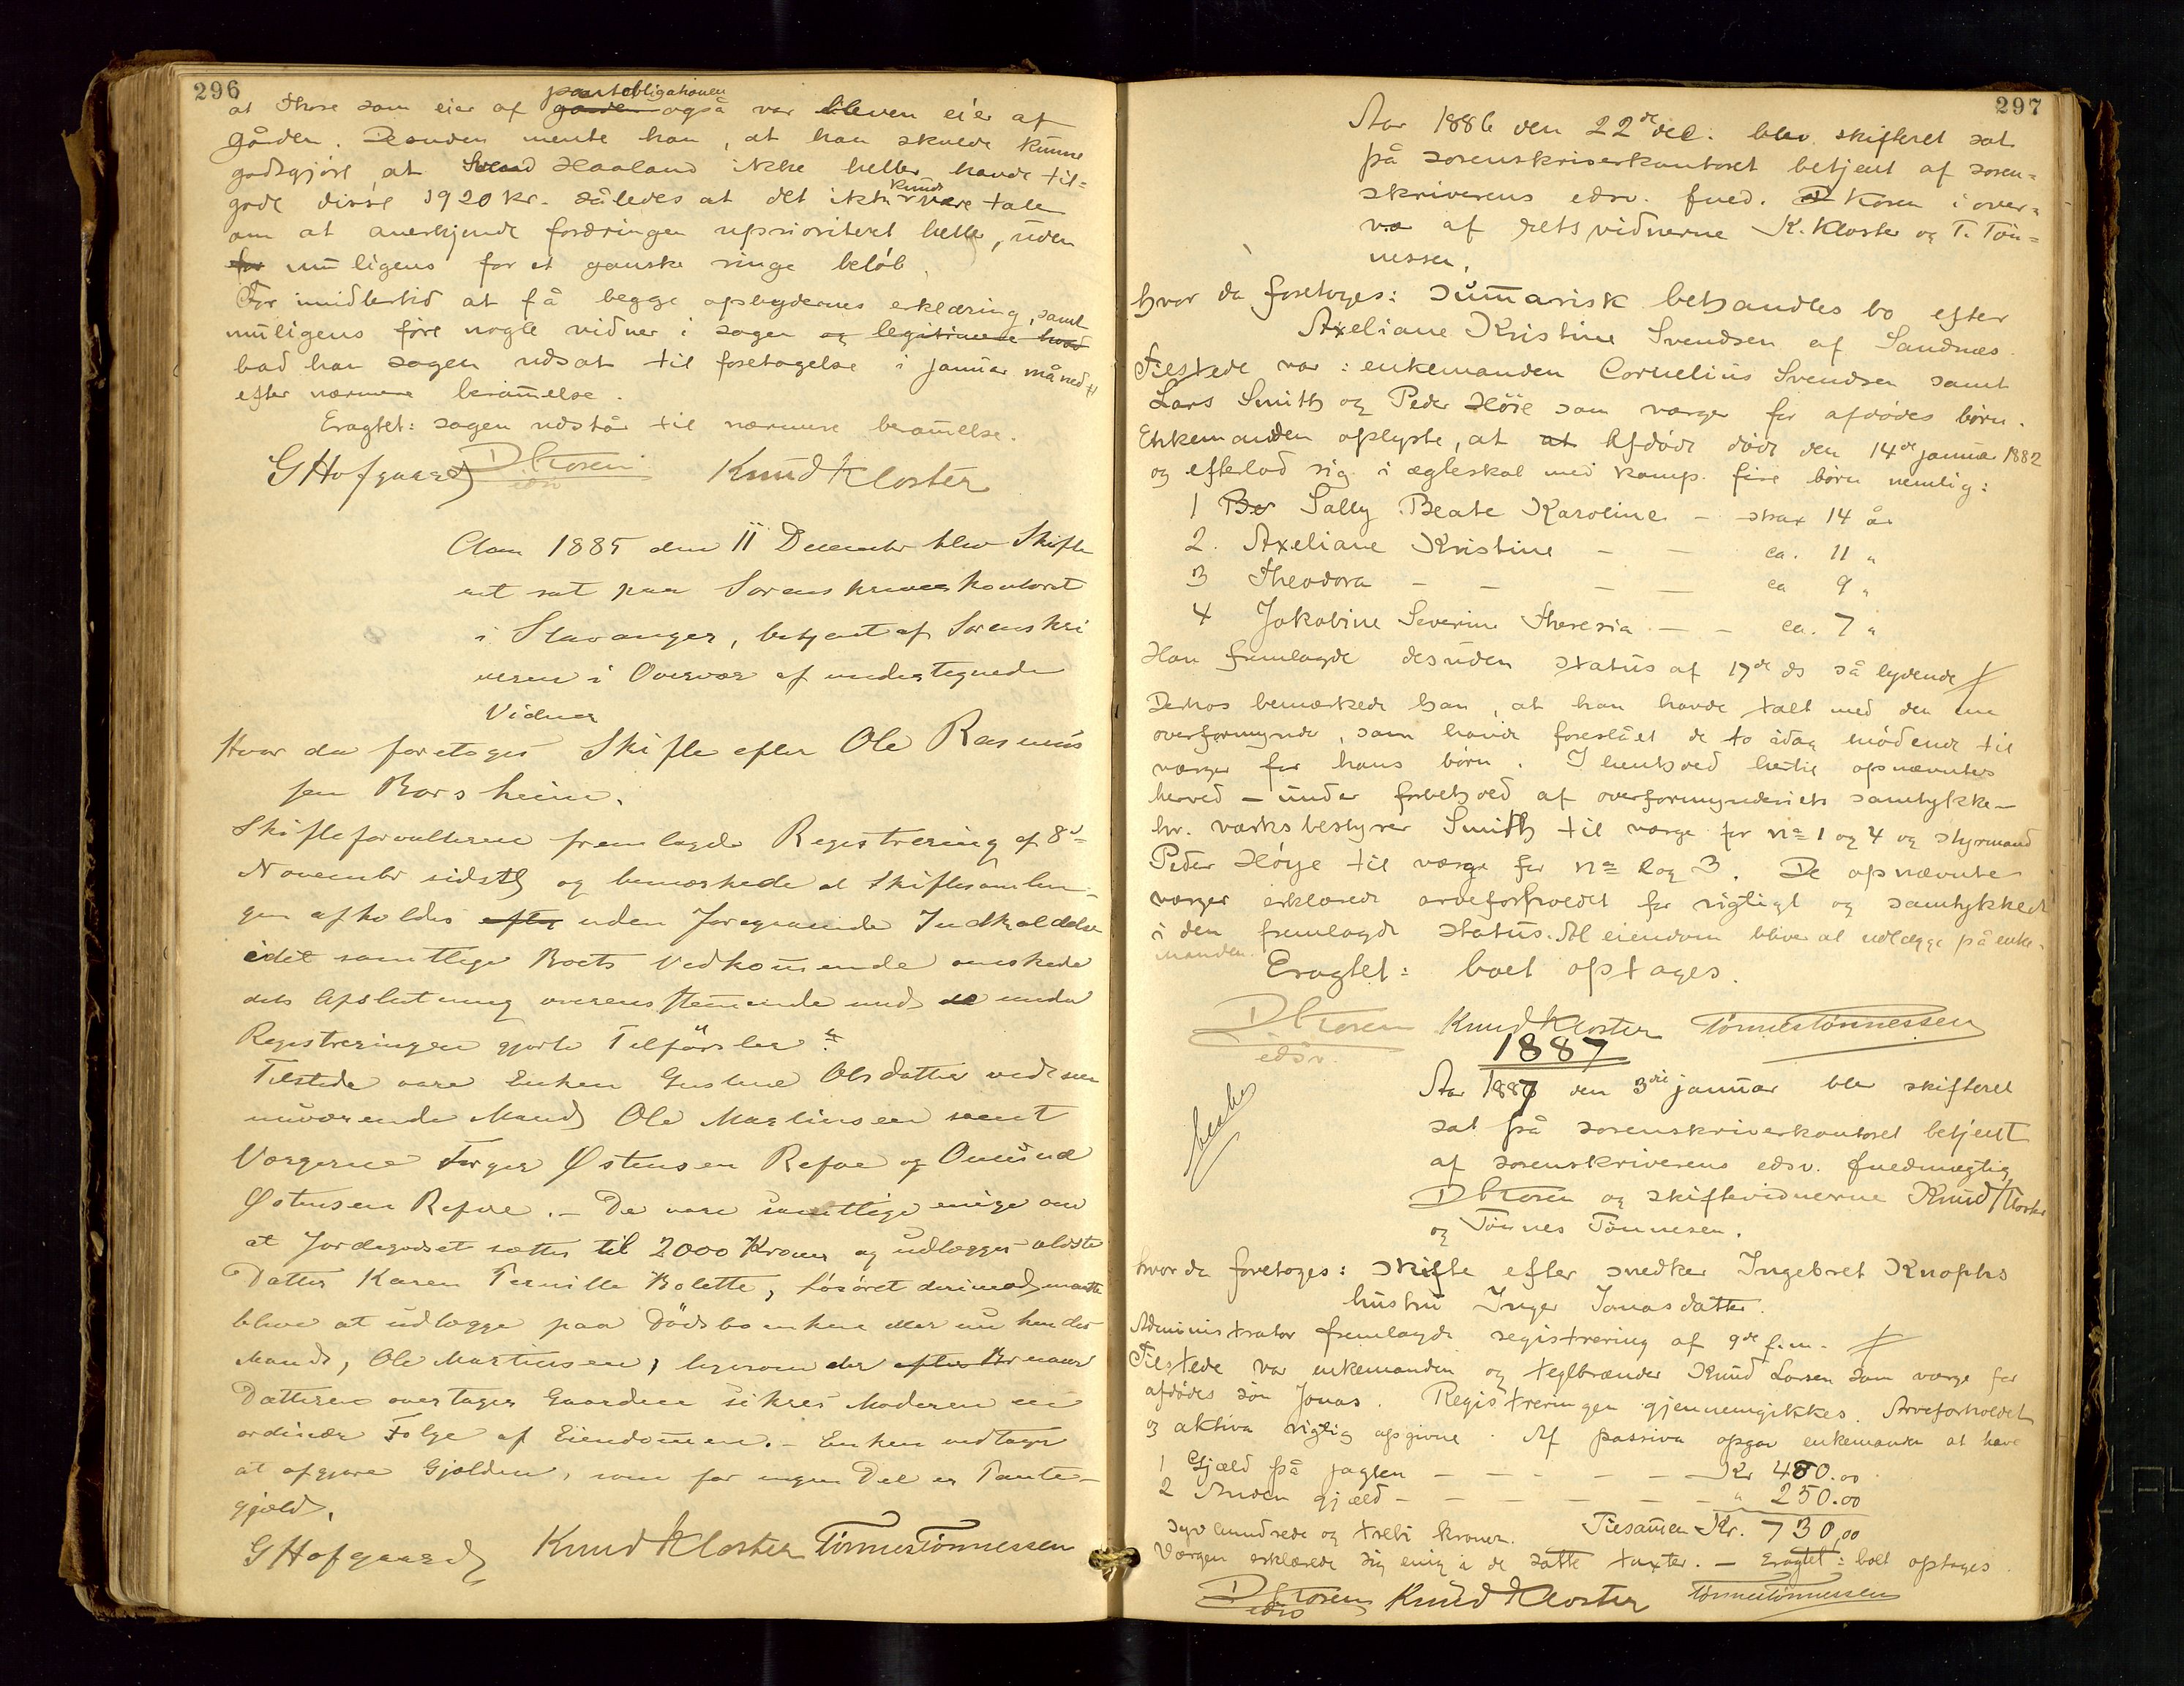 296
pantobligationen
at Those som eier af gaarden også var bleven eier af
gården. Desuden mente han, at han skulde kunne
godtgjöre, at Svend Haaland ikke heller havde til=
gode disse 1920 kr. således at det ikke kunde være tale
om at anerkjende fordringen uprioriteret heller, uden
for muligens for et ganske ringe beløb.
For imidlertid at få begge opbydernes erklæring, samt
muligens føre nogle vidner i sagen og legitimere hvad
bad han sagen udsat til foretagelse i januar måned
efter nærmere berammelse.
Eragtet: sagen udstår til nærmere berammelse.
G Hofgaard D. Kosen Knud Kloster
edsv
Aar 1885 den 11 December blev Skifte
ret sat paa Sorenskriverkontoret
i Stavanger, betjent af Sorenskri
veren i Overvær af undertegnede
Vidner
Hvor da foretoges Skifte efter Ole Rasmus
sen Borsheim.
Skifteforvalteren fremlagde Registrering af 8de
November sidstl og bemærkede at Skiftesamlin=
gen afholdes efter uden foregaaende Indkaldelse
idet samtlige Boets Vedkommende ønskede
dets Afslutning overensstemmende med de under
Registreringen gjorte Tilførsler.
Tilstede vare Enken Gurine Olsdatter med sin
nuværende Mand Ole Martinsen samt
Værgerne Torger Østensen Refve og Omund
Østensen Refve. – De vare samtlige enige om
at Jordegodset sættes til 2000 Kroner og udlægges ældste
Datter Karen Pernille Bolette, Løsöret derimod maatte
blive at udlægge paa Dödsboenken eller nu hendes
Mand, Ole Martinsen, ligesom der efter Br naar
Datteren overtager Gaarden sikres Moderen en
ordinær Folge af Eiendommen. – Enken vedtager
at afgjøre Gjælden, som for ingen Del er Pante-
gjæld.
G Hofgaard Knud Kloster Tönnes Tönnessen
297
Aar 1886 den 22de dec. blev skifteret sat
på sorenskriverkontoret betjent af soren=
skriverens edsv. fued. D Kosen i over=
vær af retsvidnerne K. Kloster og T. Tön=
nessen,
hvor da foretoges: Summarisk behandles bo efter
Axeliane Kristine Svendsen af Sandnes.
Tilstede var: enkemanden Cornelius Svendsen samt
Lars Smith og Peder Höie som værger for afdødes børn.
Enkemanden oplyste, at at Afdöde döde den 14de januar 1882
og efterlod sig i ægteskab med komp. fire börn nemlig:
1 Be Sally Beate Karoline – strax 14 år
2. Axeliane Kristine – – ca. 11 "
3 Theodora – – – – ca 9 "
4 Jakobine Severine Theresia – – ca. 7 "
Han fremlagde desuden status af 17de ds så lydende
Derhos bemærkede han, at han havde talt med den ene
overformynder, som havde foreslået de to idag mödende til
værger for hans börn. I henhold hertil opnævntes
herved – under forbehold af overformynderiets samtykke –
hr. værksbestyrer Smith til værge for no 1 og 4 og styrmand
Peder Höye til værge for no 2 og 3. De opnævnte
værger erklærede arveforholdet for rigtigt og samtykkede
i den fremlagde status. Al eiendom bliver at udlægge på enke-
manden.
Eragtet: boet optages.
D. Kosen Knud Kloster Tönnes Tönnessen
edsv.
1887
Aar 1887 den 3die januar blev skifteret
sat på sorenskriverkontoret betjent
af sorenskriverens edsv. fuedmægtig
D Kosen og skiftevidnerne Knud Kloster
og Tönnes Tönnesen.
hvor da foretoges: skifte efter snedker Ingebret Knophs
hustru Inger Jonasdatter.
Administrator fremlagde registrering af 9de f.m.
Tilstede var enkemanden og teglbrænder Knud Larsen som værge for
afdödes sön Jonas. Registreringen gjennemgikkes. Arveforholdet
og aktiva rigtig opgivne. Af passiva opgav enkemanden at have
1 Gjæld på jagten – – – – – – Kr 480.00
2 Anden gjæld – – – – – – " 250.00
syv hundrede og treti kroner. Tilsammen Kr. 730,00
Værgen erklærede sig enig i de satte taxter. – Eragtet: boet optages.
D Kosen Knud Kloster Tönnes Tönnessen
edsv